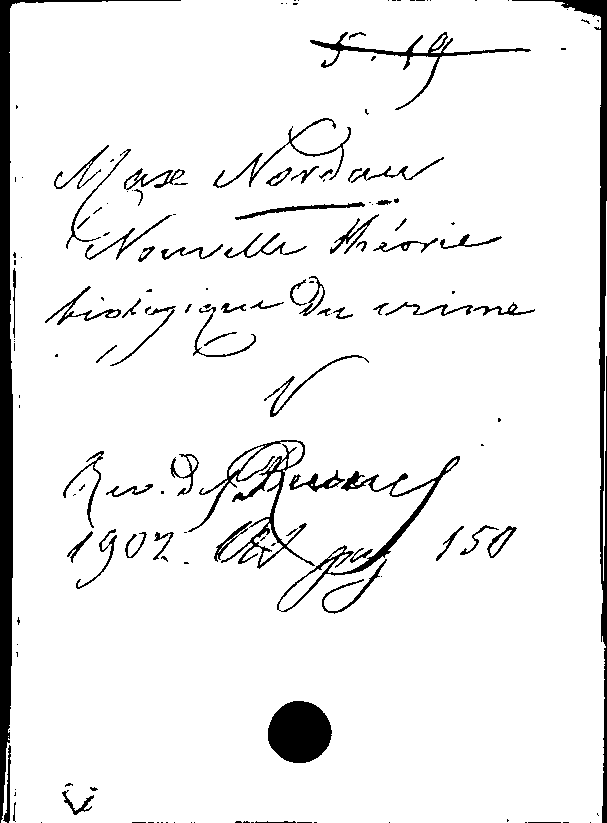 5.19
Max Nordau
Nouvelle théorie
biologique du crime
V
Rev. des Revues
1902. Oct pag 150